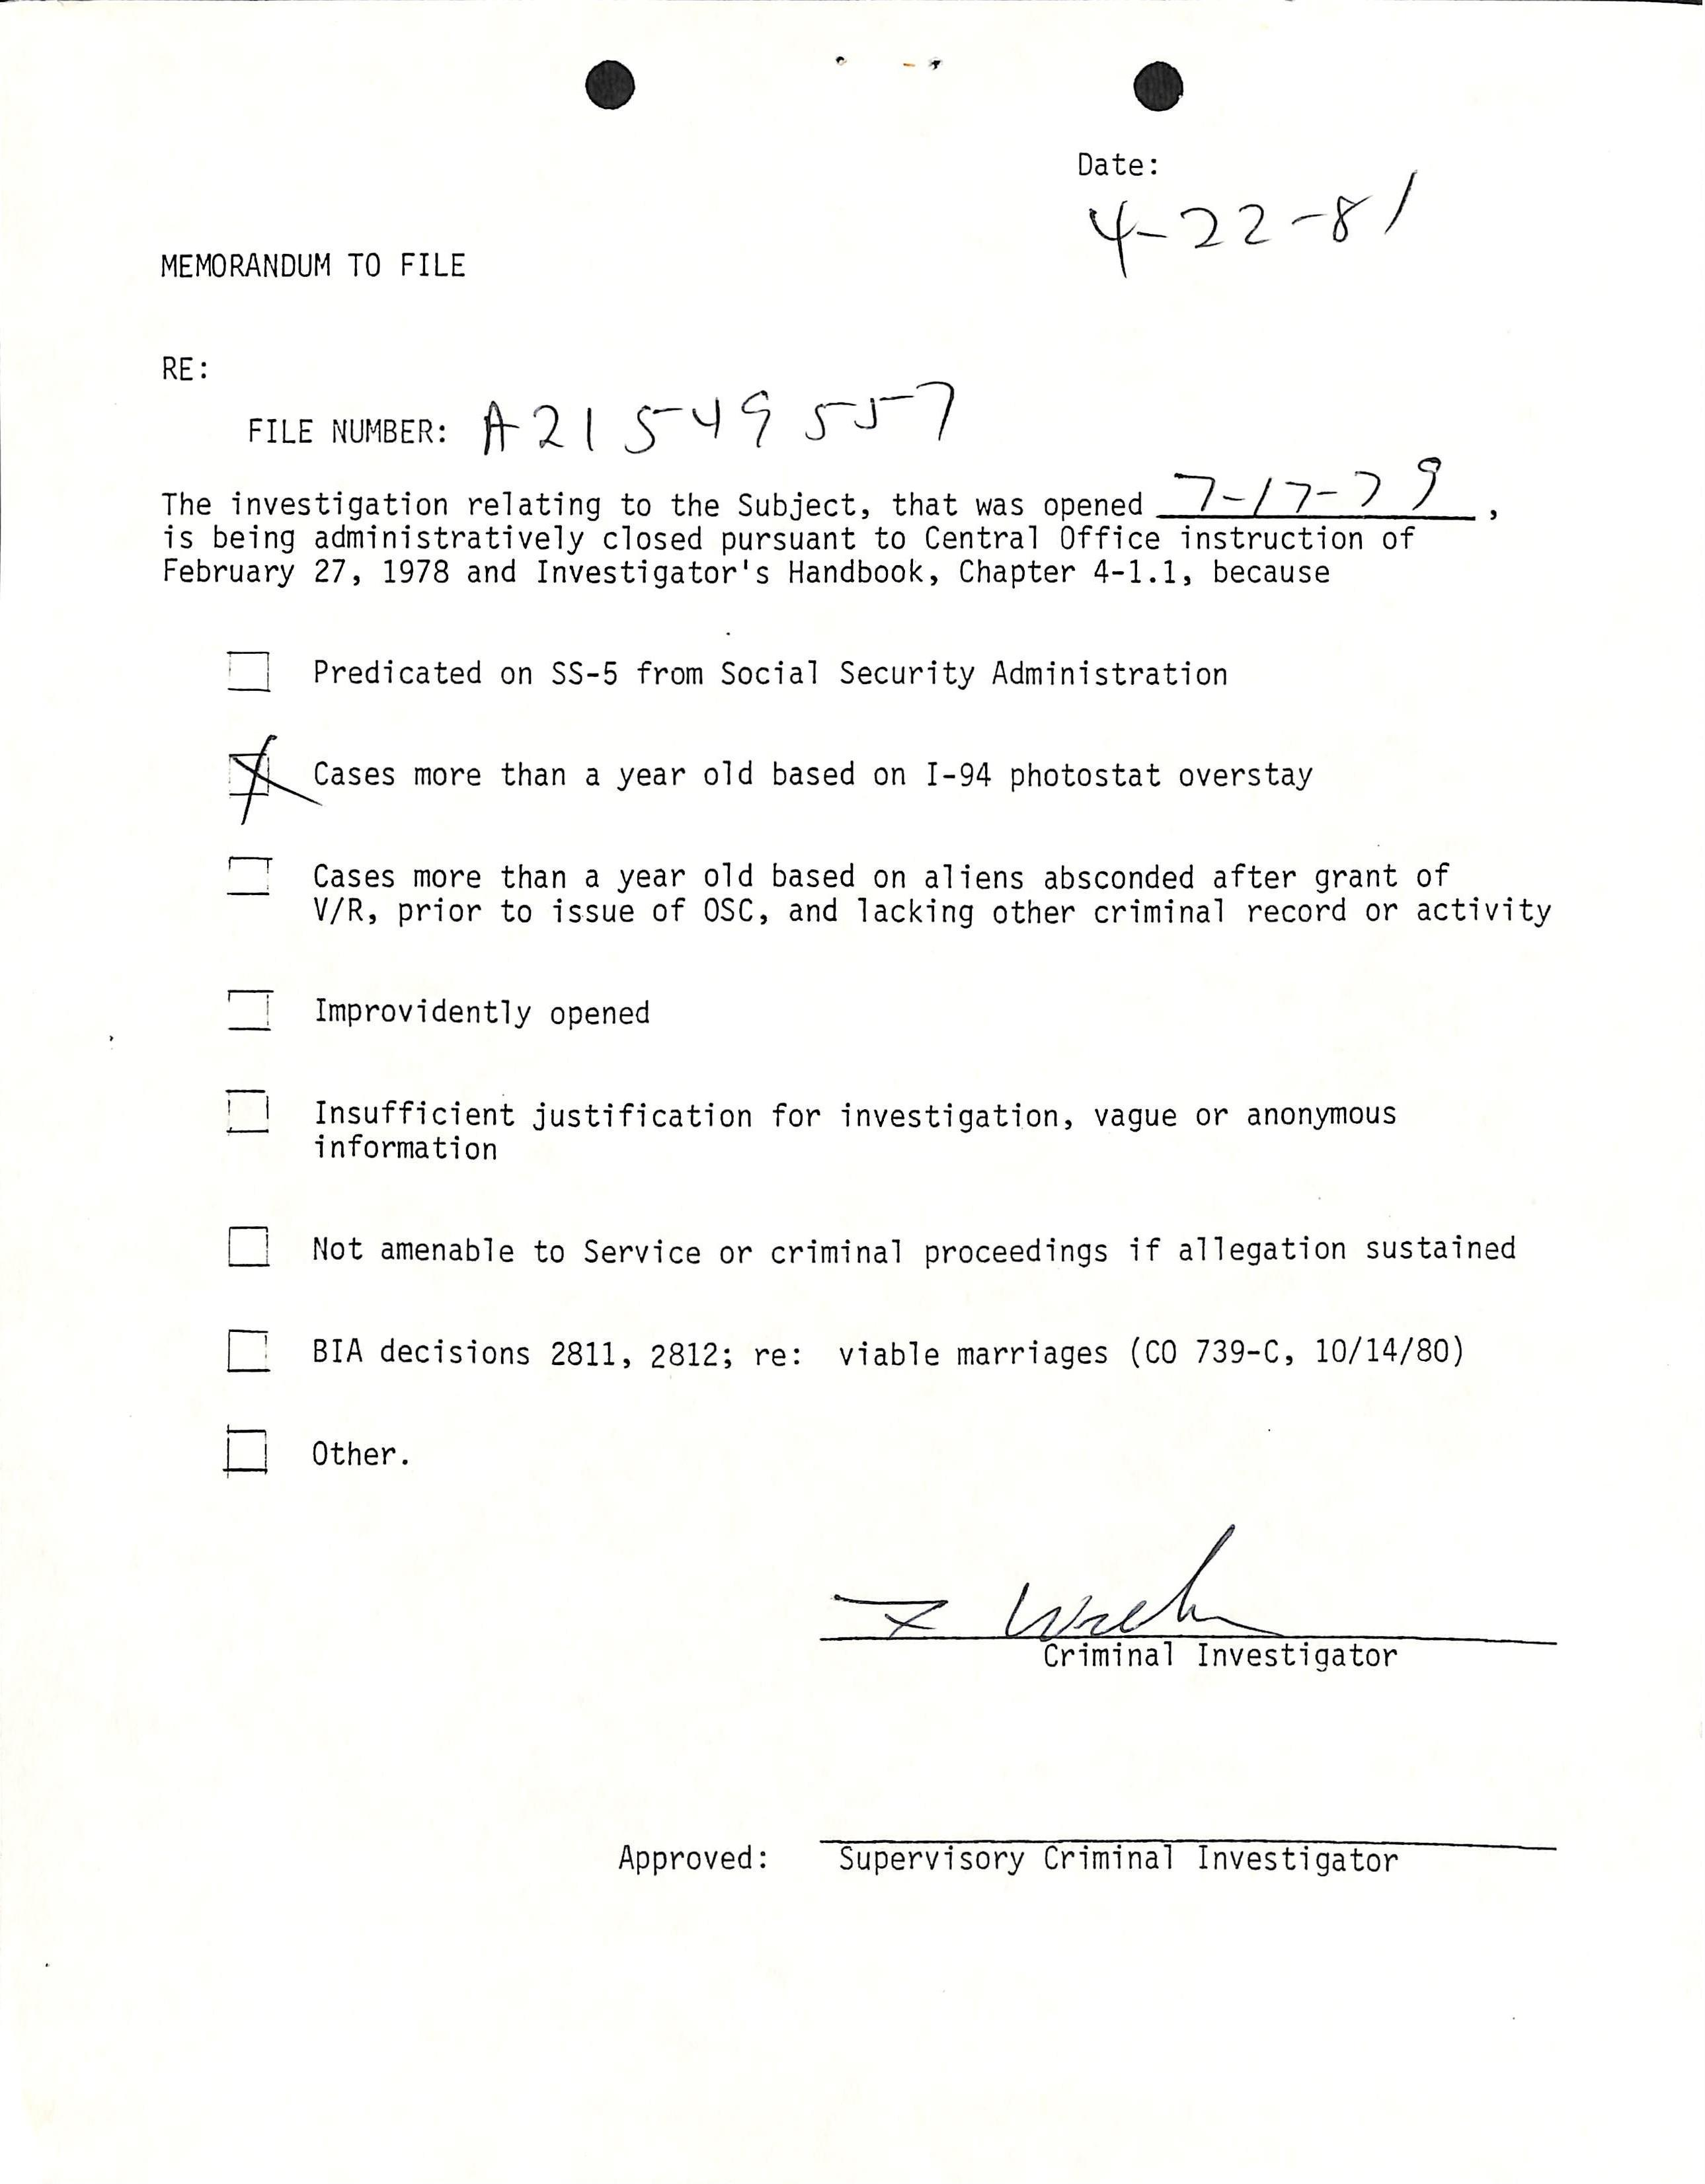 Date:
4-22-81
MEMORANDUM TO FILE
RE:
FILE NUMBER: A21 549 557
The investigation relating to the Subject, that was opened 7-17-79,
is being administratively closed pursuant to Central Office instruction of
February 27, 1978 and Investigator's Handbook, Chapter 4-1.1, because
Predicated on SS-5 from Social Security Administration
Cases more than a year old based on I-94 photostat overstay
Cases more than a year old based on aliens absconded after grant of
V/R, prior to issue of OSC, and lacking other criminal record or activity
Improvidently opened
Insufficient justification for investigation, vague or anonymous
information
Not amenable to Service or criminal proceedings if allegation sustained
BIA decisions 2811, 2812; re: viable marriages (CO 739-C, 10/14/80)
Other.
Criminal Investigator
Approved: Supervisory Criminal Investigator